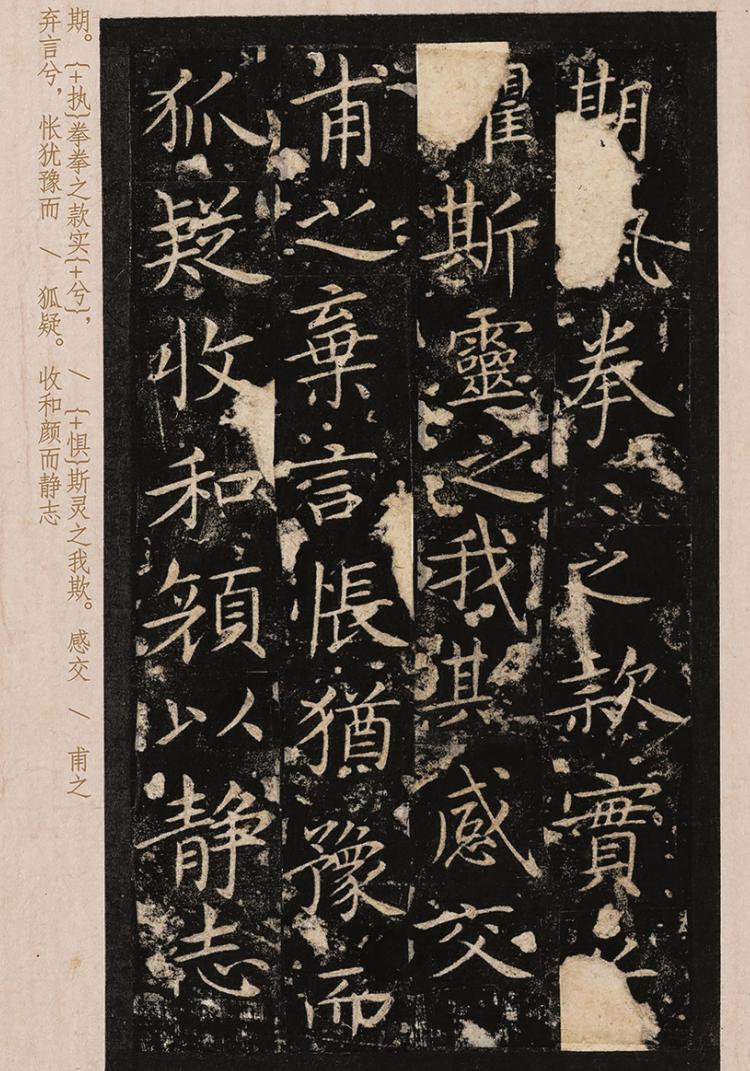 期拳〻之款實
斯靈之我其感交
甫之棄言悵猶豫而
狐疑收和顔以静志
期。{+执}拳拳之款实{+兮}， / {+惧}斯灵之我欺。感交 / 甫之
弃言兮，怅犹豫而 / 狐疑。收和颜而静志